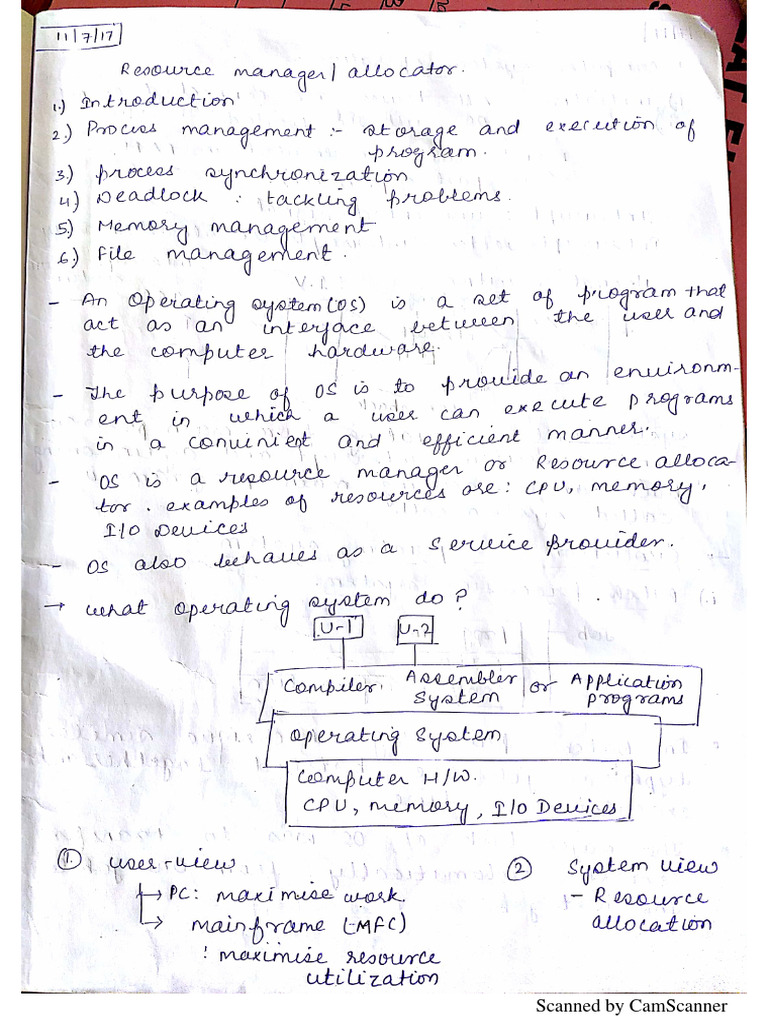 11/7/17
Resource manager/ allocator.
1.) Introduction
2.) Process management :- storage and execution of
program.
3.) process synchronization
4.) Deadlock : tackling problems.
5.) Memory management
6.) File management.
- An Operating system (OS) is a set of program that
act as an interface between the user and
the computer hardware.
- The purpose of OS is to provide an environm-
ent in which a user can execute programs
in a convinient and efficient manner.
- OS is a resource manager or Resource alloca-
tor. examples of resources are: CPU, memory,
I/O Devices
- OS also behaves as a service provider.
→ what operating system do?
U-1 U-2
Compiler, Assembler or Application
System programs
Operating System
Computer H/W.
CPU, memory, I/O Devices
1. user-view
→ PC: maximise work.
→ mainframe (-MFC)
: maximise resource
utilization
2 System view
- Resource
allocation
Scanned by CamScanner